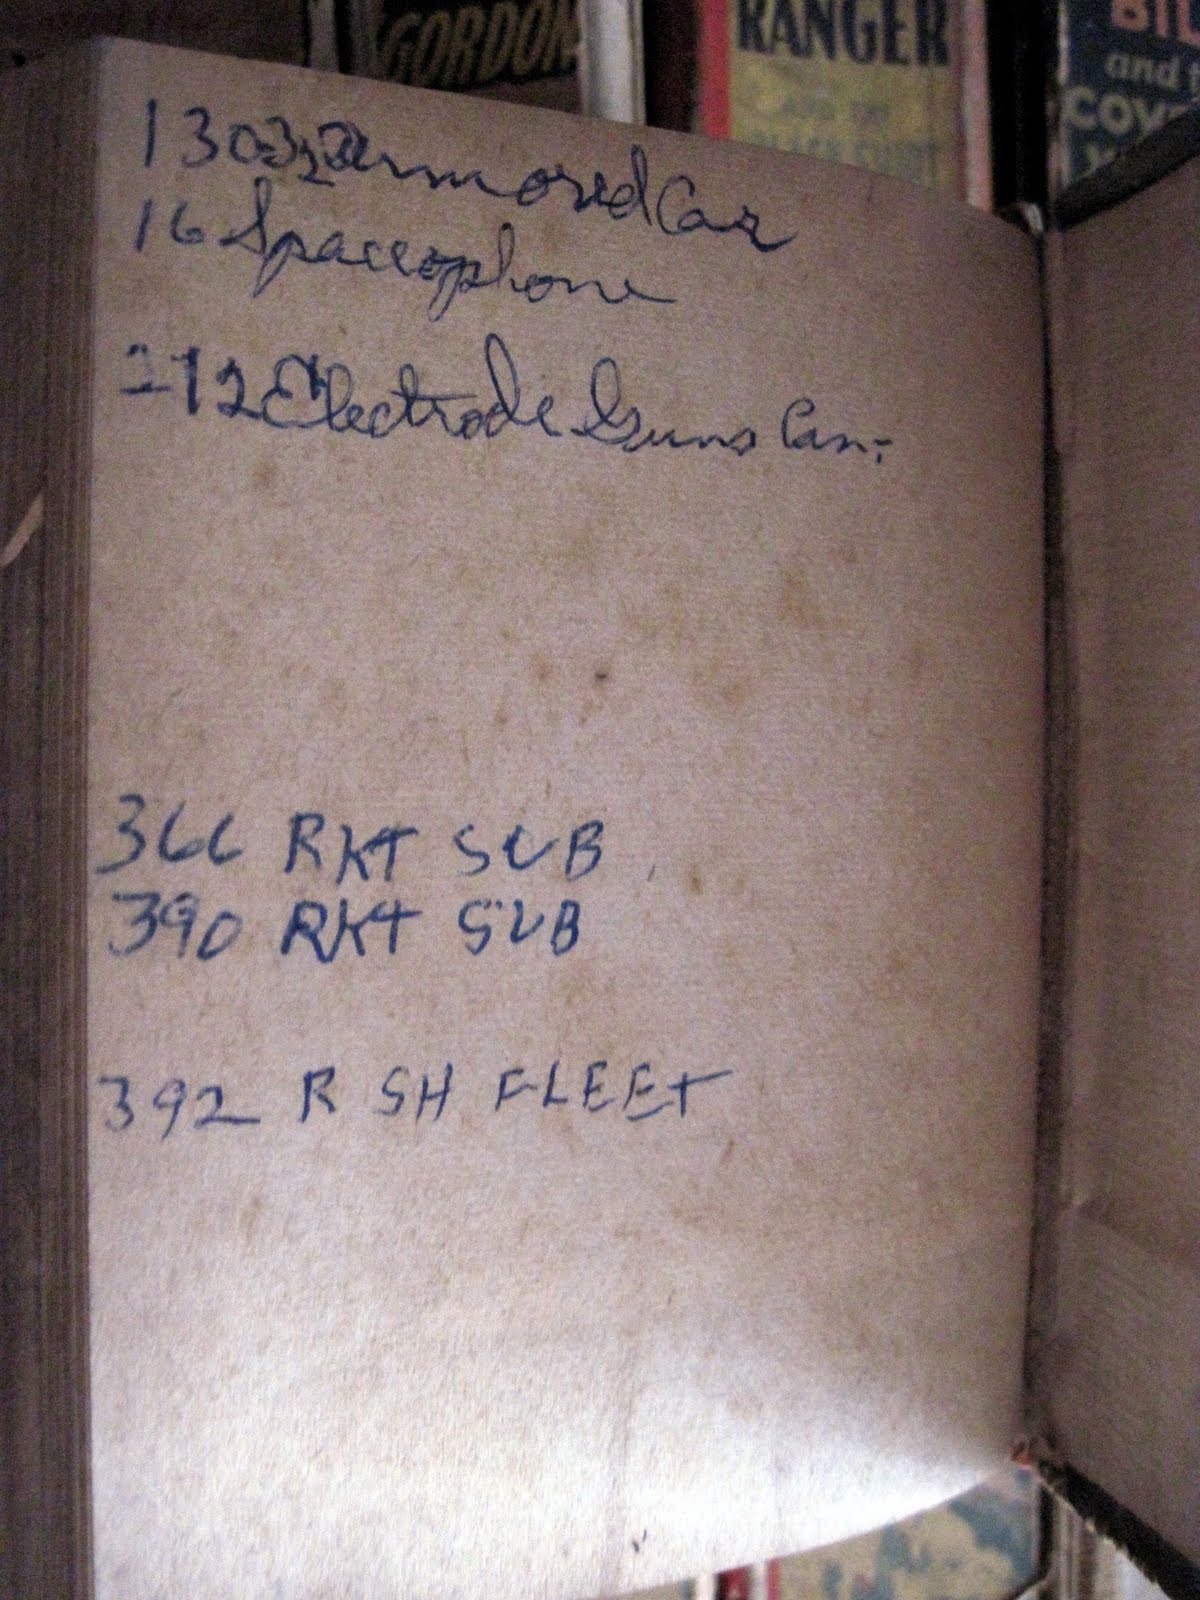 GORDON
RANGER
AND THE
BIL
and t
COY
Armored Car
16 Spaceophone
272 Electrode Guns
366 RKT SUB
390 RKT SUB
392 R SH FLEET